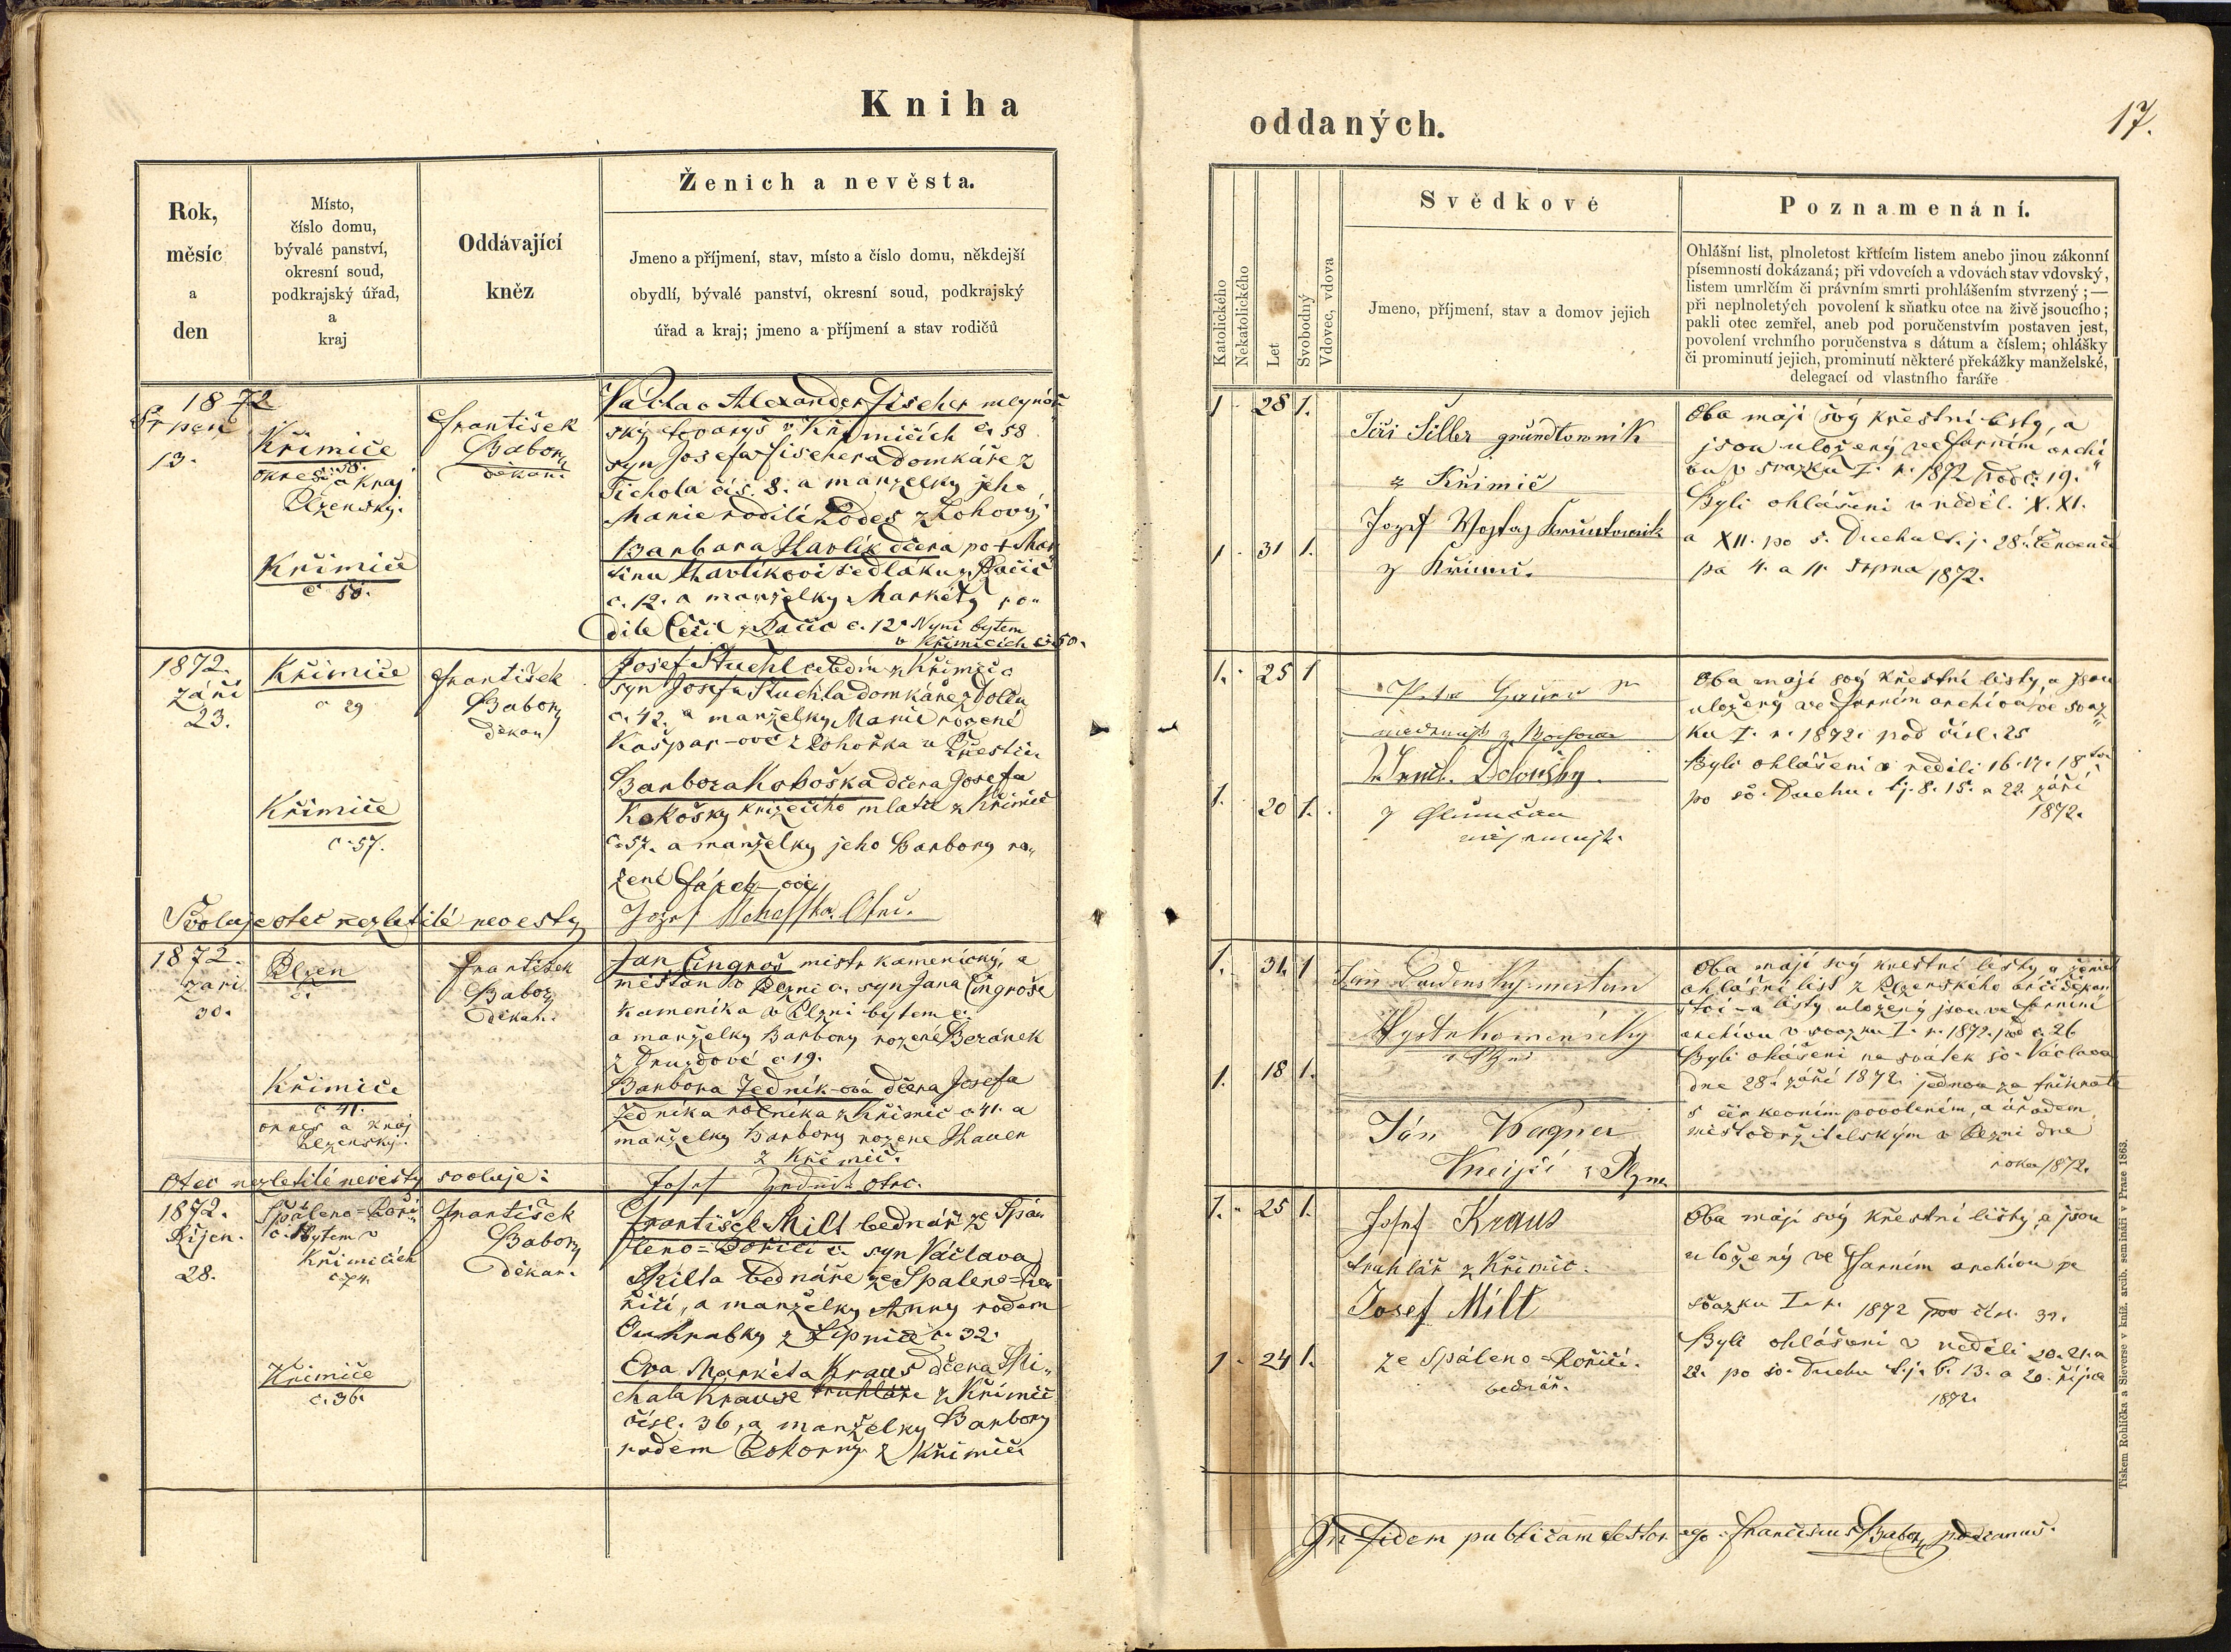 Kniha
oddaných.
17.
Rok,
měsíc
a
den
Místo,
číslo domu,
bývalé panství,
okresní soud,
podkrajský úřad,
a
kraj
Oddávající
kněz
Ženich a nevěsta.
Jmeno a příjmení, stav, místo a číslo domu, někdejší
obydlí, bývalé panství, okresní soud, podkrajský
úřad a kraj; jmeno a příjmení a stav rodičů
Katolického
Nekatolického
Let
Svobodný
Vdovec, vdova
Svědkové
Jmeno, příjmení, stav a domov jejich
Poznamenání.
Ohlášní list, plnoletost křtícím listem anebo jinou zákonní
písemností dokázaná; při vdovcích a vdovách stav vdovský,
listem umrlčím či právním smrti prohlášením stvrzený; —
při neplnoletých povolení k sňatku otce na živě jsoucího;
pakli otec zemřel, aneb pod poručenstvím postaven jest,
povolení vrchního poručenstva s dátum a číslem; ohlášky
či prominutí jejich, prominutí některé překážky manželské,
delegací od vlastního faráře
1872
Srpen
13.
Křimice
č. 58.
okres a Kraj
Plzenský.
Křimice
č 50.
František
Babor
děkan.
Václav Alexander Fischer mlynář
ský tovaryš v Křimicích č. 58
syn Josefa Fischera domkáře z
Tichola čís. 8. a manželky jeho
Marie rodilé
Barbara Havlík dčera po + Mar
tinu Havlíkovi sedláku z Račic
č. 12. a manželky Markéty ro„
dilé z Račic č. 12 Nyní bytem
v Křimicích č. 50.
1 28 1.
1 31 1.
Jiří Šiller grundtovnik
z Křimic
Jozef
z Křimic.
Oba mají svý křestní listy, a
jsou uložený ve farním archi
vu v svazku I. r. 1872 pod č. 19.
Byli ohlášeni v neděl. X. XI.
a XII. po s. Duchu t. j. 28. července
pa 4. a 11 srpna 1872.
1872.
září
23.
Křimice
č 29
Křimice
č. 57.
František
Babor
děkan
Josef Stuchl čeledín z Křimic
syn Josefa Stuchla domkáře z
č. 42. a manželky Marie rozené
Kašpar-ové z
Barbora Kokoška dčera Josefa
Kokošky z Křimic
č. 57. a manželky jeho Barbory ro„
zené
Svoluje otec nezletilé nevesty
Otec.
1. 25 1
1. 20 1.
Oba mají svý křestní listy, a jsou
uložený ve farním archivu ve svaz
ku I. r. 1872. pod čísl. 25
Byli ohlášeni v neděli 16. 17. 18.
po sv. Duchu. t. j. 8. 15. a 22. září
1872.
1872.
září
30.
Plzen
č.
Křimice
č 41.
okres a Kraj
Plzenský.
František
Babor
děkan.
Jan Čingroš mistr kamenický, a
měštan v Plzni č. syn Jana Čingroše
kameníka v Plzni bytem č.
a manželky Barbory rozené Beránek
z Druzdové č 19.
Barbora Jedník-ová dčera Josefa
Jedníka rolníka z Křimic č 41. a
manželky Barbory rozené Hauer
z Křimic.
Otec nezletilé nevěsty svoluje:
Josef Jedník otec.
1. 31. 1
1. 18 1.
Jan Wagner
z Plzne
Oba mají svý křestní listy, a ženich
ohlášní list z Plzenského arciděkan
ství - a listy uložený jsou ve farním
archivu v svazku I. r. 1872. pod č. 26
Byli ohlášeni na svátek sv. Václava
dne 28. září 1872. jednou za třikráte
s církevním povolením, a úřadem
místodržitelským v Plzni dne
roku 1872.
1872.
Říjen.
28.
Spáleno=Poři„
č. Bytem v
Křimicích
č 74.
Křimice
č. 36.
František
Babor
děkan.
František Milt bednář ze Spá„
leno=Poříčí č. syn Václava
Milta bednáře ze Spáleno=Po„
říčí, a manželky Anny rodem
Ouhrabky z Lipnice č. 32.
Eva Markéta Kraus dčera Mi„
chala Krause truhláře z Křimic
čísl. 36, a manželky Barbory
rodem Pokorný z Křimic
1. 25 1.
1. 24 1.
Josef Kraus
truhlář z Křimic.
Josef Milt
ze Spáleno=Poříčí.
bednář.
Oba mají svý křestní listy, a jsou
uložený ve farním archivu ve
svazku I. r. 1872 pod čísl. 31.
Byli ohlášeni v neděli 20. 21. a
22. po sv. Duchu t. j. 6. 13. a 20. října
1872.
In fidem publicam testor ego Franciscus Babor decanus.
Tiskem Rohlíčka a Sieverse v kníž. arcib. semináři v Praze 1863.